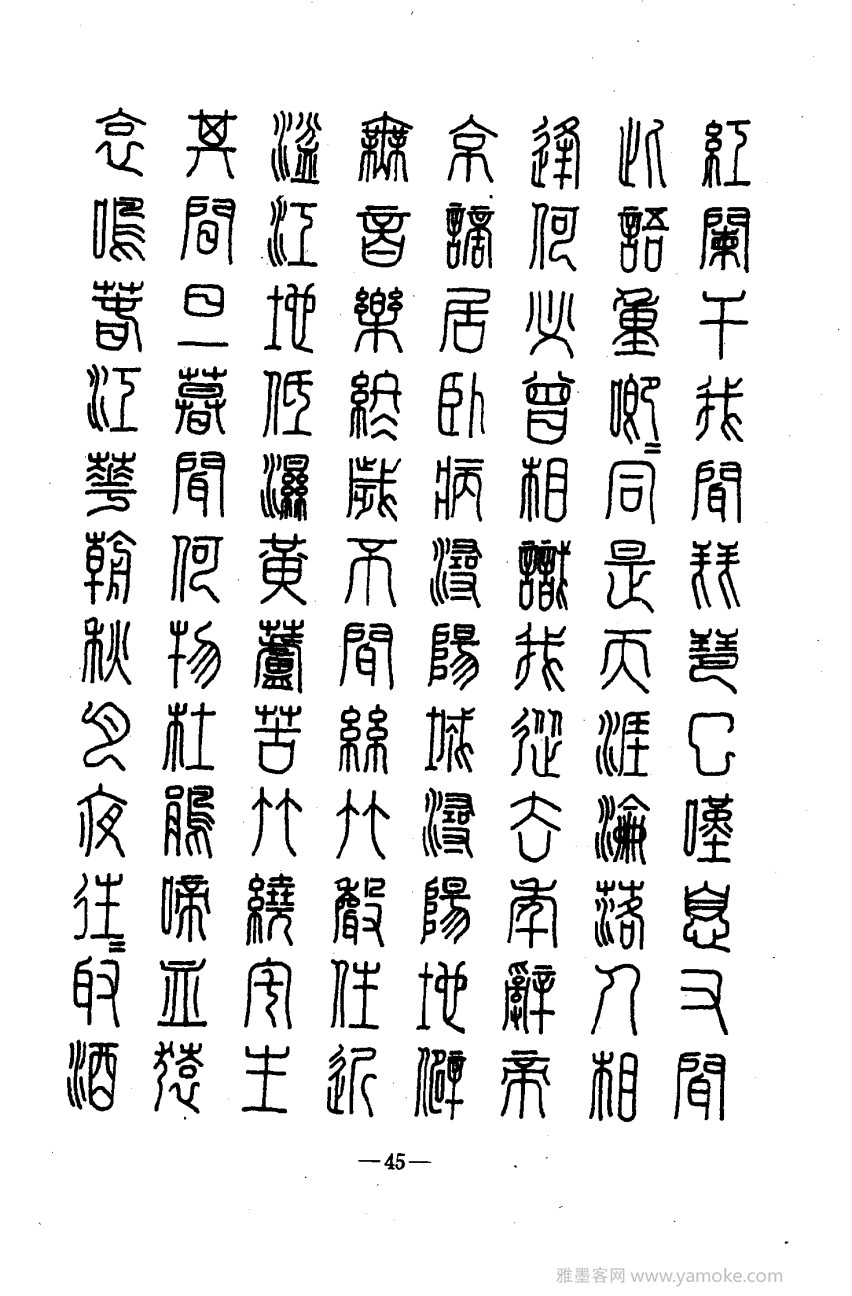 紅闌干我聞琵琶已嘆息又聞
此語重唧〻同是天涯淪落人相
逢何必曾相識我從去年辭帝
京謫居臥病潯陽城潯陽地僻
無音樂終歲不聞絲竹聲住近
湓江地低濕黃蘆苦竹繞宅生
其間旦暮聞何物杜鵑啼血猿
哀鳴春江華朝秋月夜往〻取酒
—45—
雅墨客网 www.yamoke.com